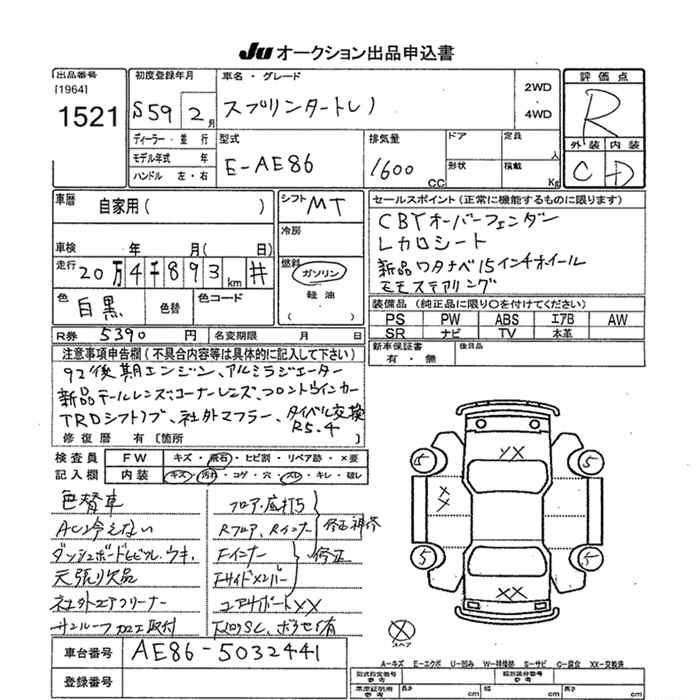 Ju オークション出品申込書
出品番号
[1964]
1521
初度登録年月
S59 2 月
車名・グレード
スプリンタートレノ
2WD
・
4WD
評価点
R
外装 内装
C D
ディーラー・並行
モデル年式 年
ハンドル 左・右
型式
E-AE86
排気量
1600 CC
ドア
形状
定員
人
積載
Kg
車暦
自家用( )
車検 年 月( 日)
走行 20万4千893km #
色 白黒
色替
色コード
シフト MT
冷房
燃料 ガソリン
軽油
( )
セールスポイント(正常に機能するものに限ります)
CBYオーバーフェンダー
レカロシート
新品ワタナベ15インチホイール
モモステアリング
装備品(純正品に限り○を付けてください)
PS PW ABS エアB AW
SR ナビ TV 本革
新車保証書
有・無
後日品
R券 5390 円
名変期限 月 日
注意事項申告欄(不具合内容等は具体的に記入して下さい)
92後期エンジン、アルミラジエーター
新品テールレンズ・コーナーレンズ、フロントウインカー
TRDシフトノブ、社外マフラー、タイベル交換
R5.4
修復暦 有[箇所 ]
検査員 FW キズ・飛石・ヒビ割・リペア跡・×要
記入欄 内装 キズ・汚れ・コゲ・穴・スレ・キレ・破レ
色替車
AC冷えない
ダッシュボードヒビワレ、ウキ、
天張り欠品
社外エアクリーナー
サンルーフ加工取付
フロア・底打ち
Rフロア、Rインナー
修正補修
Fインナー
修正
Fサイドメンバー
コアサポートXX
下回りSC、
有
5 XX 5
X
X
X
5 XX 5
スペア
車台番号 AE86-5032441
登録番号
A-キズ E-エクボ U-凹み W-補修跡 S-サビ C-腐食 XX-交換済
型式指定番号
参考
類別区分番号
参考
車庫証明用
参考
長さ cm 幅 cm 高さ cm